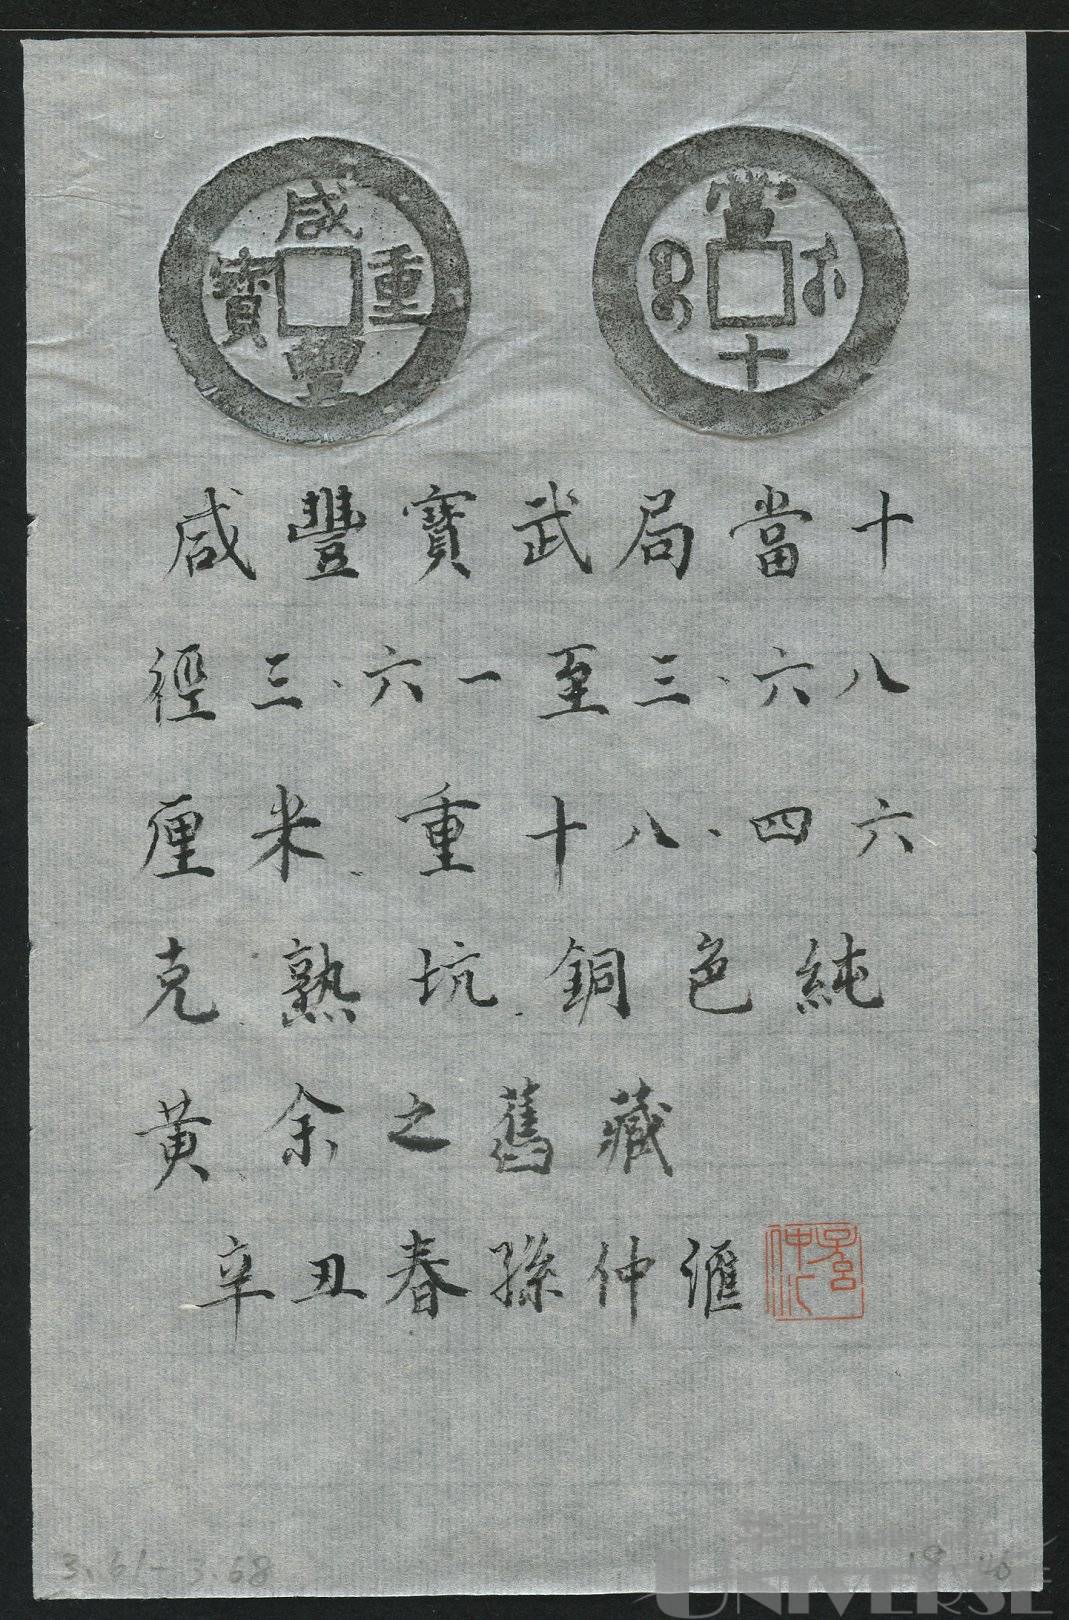 咸豐重寶
當十
咸豐寶武局當十
徑三.六一至三.六八
厘米、重十八.四六
克.熟坑.銅色純
黃余之舊藏
辛丑春孫仲滙
3.61-3.68
UNIVERSE